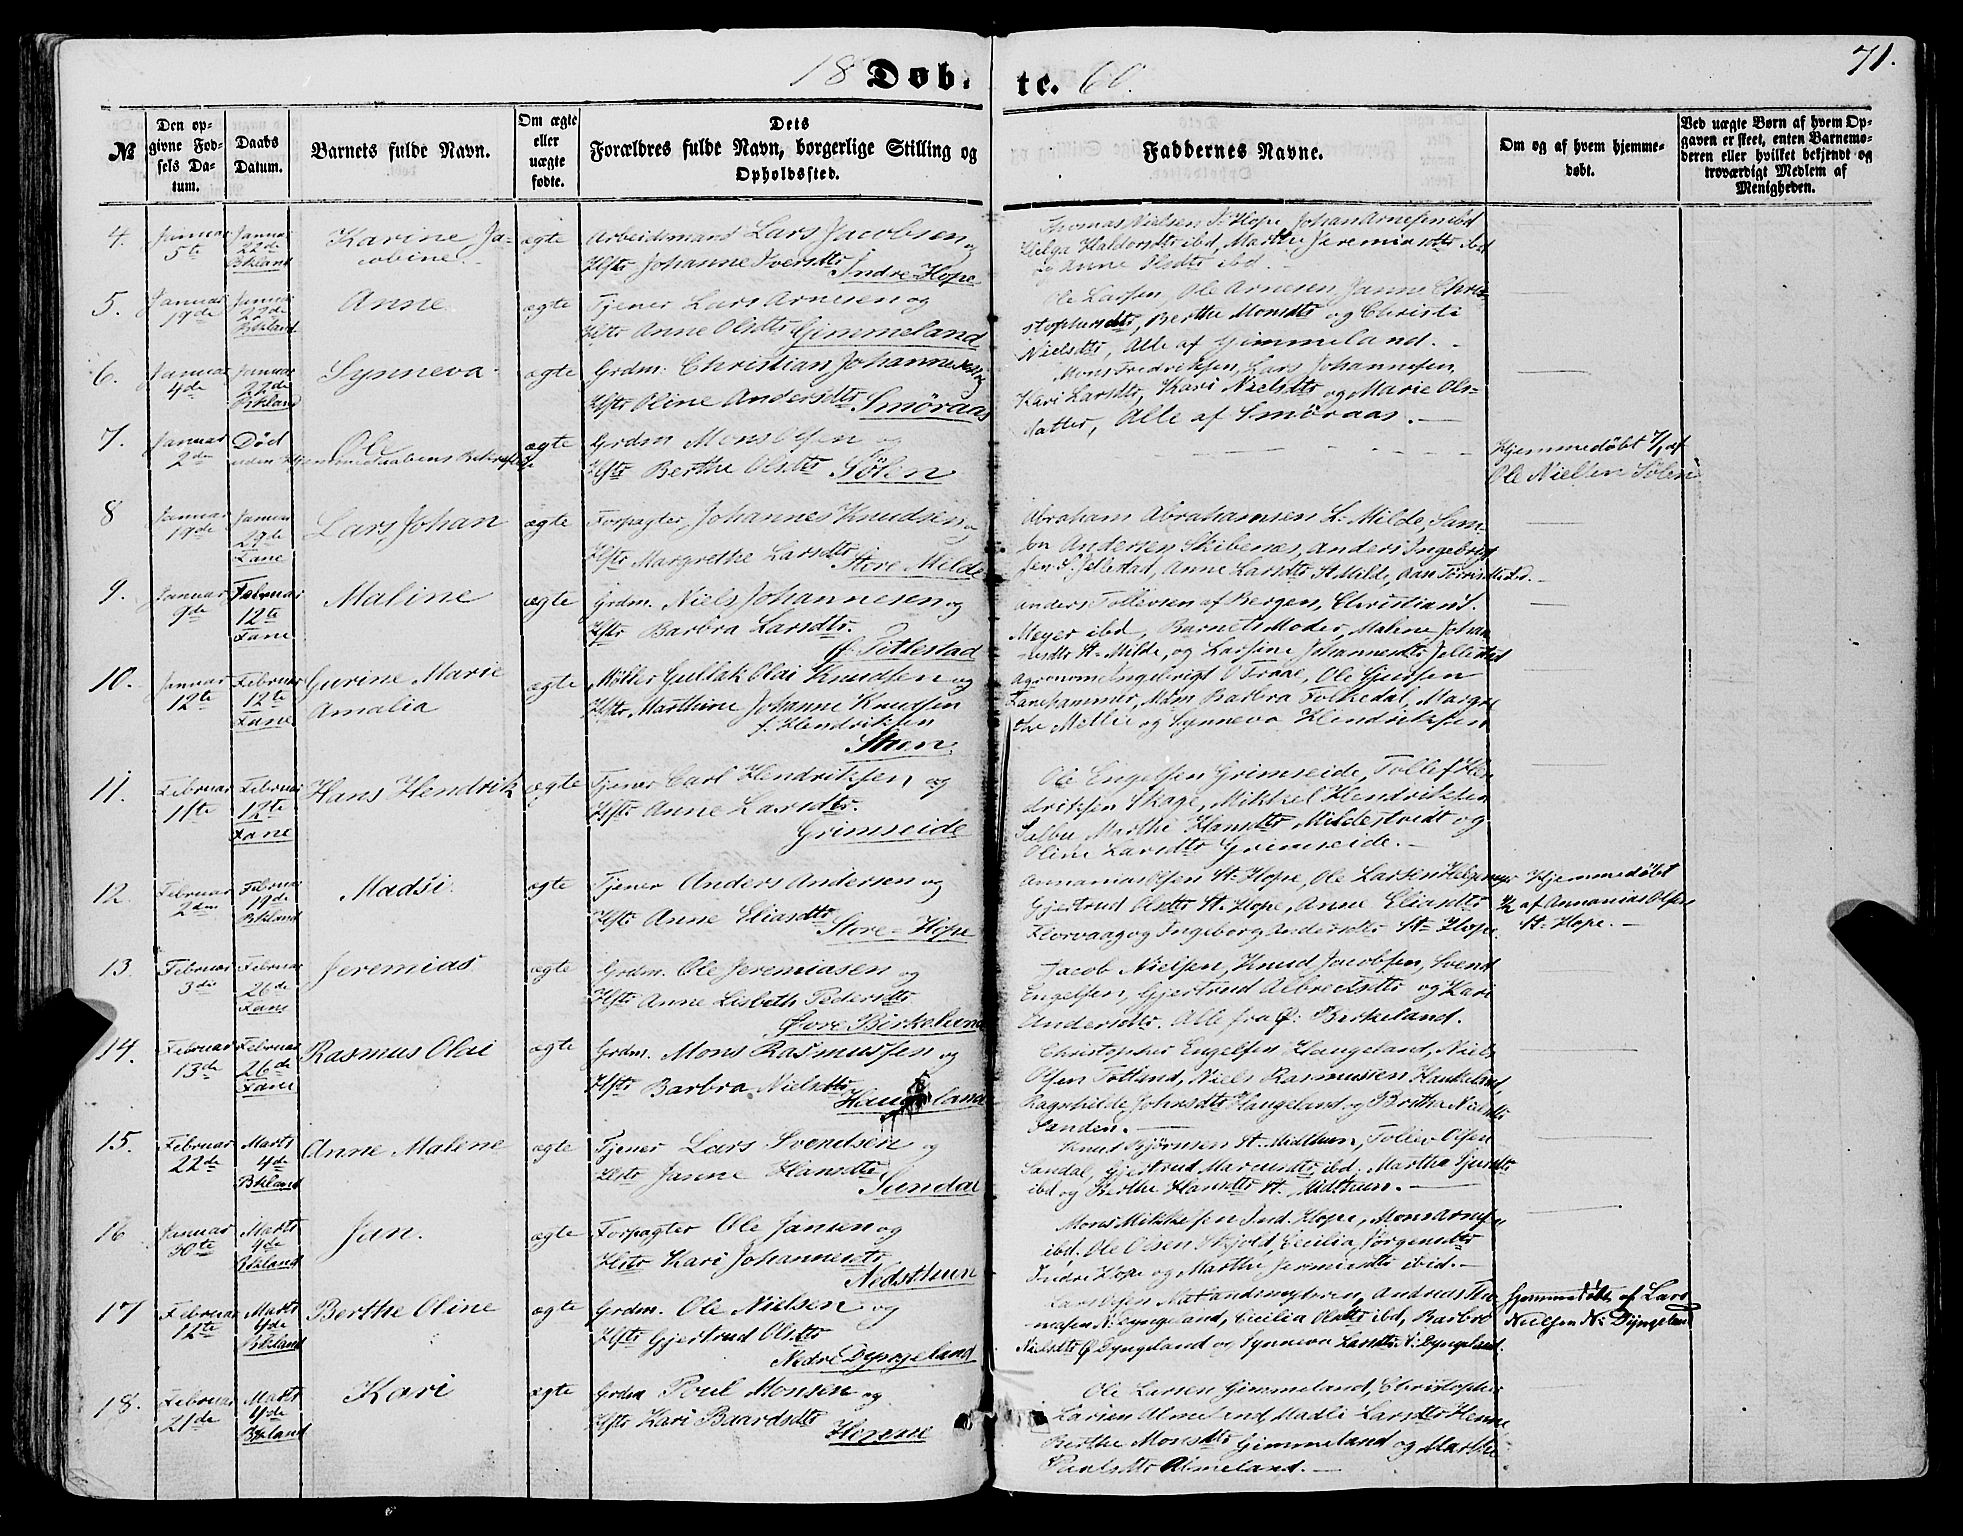 71.
18 Døbte. 60.
№
Den opgivne Fødsels Datum.
Daabs Datum.
Barnets fulde Navn.
Om ægte eller uægte fødte.
Dets Forældres fulde Navn, borgerlige Stilling og Opholdssted.
Faddernes Navne.
Om og af hvem hjemmedøbt.
Ved uægte Børn af hvem Opgaven er skeet, enten Barnemoderen eller hvilket bekjendt og troværdigt Medlem af Menigheden.
4. Januar 5te Januar 22de Bkland Karine Jacobine. ægte
Arbeidsmand Lars Jacobsen og
Hstr Johanne Iversdtr Indre-Hope
Thomas Nielsen I. Hope, Johan Arnesen ibd
Helga Haldorsdtr ibd, Marthe Jeremiasdtr ibd
og Anne Olsdtr ibd.
5. Januar 19de Januar 22de Bkland Anne ægte
Tjener Lars Arnesen og
Hstr Anne Olsdtr Gimmeland
Ole Larsen, Ole Arnesen, Janna Chri-
stophersdtr, Berthe Monsdtr og Christi
Nielsdtr, Alle af Gimmeland.
6. Januar 4de Januar 22de Bkland Synneva ægte
Grdm. Christian Johannesen og
Hstr Oline Andersdtr Smøraas
Mons Fredriksen, Lars Johannesen,
Kari Larsdtr, Kari Nielsdtr og Marie Ols-
datter, Alle af Smøraas.
7. Januar 2den Død uden Hjemmedaabens Bekræftelse Ole ægte
Grdm Mons Olsen og
Hstr Berthe Olsdtr Sølen
Hjemmedøbt af
Ole Nielsen Sølen
8 Januar 19de Januar 29de Fane Lars Johan ægte
Forpagter Johannes Knudsen og
Hstr Margrethe Larsdtr Store Milde
Abraham Abrahamsen L. Milde, Sam-
son Andersen Skibenæs, Anders Ingebrigt-
sen S. Jellestad, Anne Larsdtr St Milde,
9. Januar 9de Februar 12te Fane Maline ægte
Grdm. Niels Johannesen og
Hstr Barbra Larsdtr.
Ø. Tittlestad
Anders Tollevsen af Bergen, Christian S.
Meyer ibd, Barnets Moder, Malene Johan-
nesdtr St. Milde, og Larsine Johannesdtr Jellestad
10. Januar 12te Februar 12te Fane Gurine Marie Amalia ægte
Møller Gullak Olai Knudsen og
Hstr, Marthine Johanne Knudsen
f. Hendriksen
Steen
Agronome Ingebrigt O Traae, Ole Gjertsen
Fanehammer, Mdm Barbra Folkedal, Margre-
the Mellie og Synneva Hendriksen
11. Februar 1ste Februar 12te Fane Hans Hendrik ægte
Tjener Carl Hendriksen og
Hstr Anne Larsdtr.
Grimseide
Ole Engelsen Grimseide, Tollef Hen-
driksen Skage, Mikkel Hendriksen
Marthe Hansdtr Mildestvedt og
Oline Larsdtr Grimseide.
12. Februar 2den Februar 19de Bkland Madsi. ægte
Tjener Anders Andersen og
Hstr Anne Eliasdtr
Store-Hope
Annanias Olsen St. Hope, Ole Larsen
Gjertrud Olsdtr St. Hope, Anne Eliasdtr
Florvaag og Ingeborg Andersdtr St Hope.
Hjemmedøbt
af Annanias Olsen
St. Hope.
13. Februar 3die Februar 26de Fane Jeremias ægte
Grdm. Ole Jeremiasen og
Hstr Anne Lisbeth Pedersdtr
Øvre Birkeland
Jacob Nielsen, Knud Jacobsen, Svend
Engelsen, Gjertrud Albreitsdtr og Kari
Andersdtr. Alle fra Ø: Birkeland.
14. Februar 13de Februar 26de Fane Rasmus Olai ægte
Grdm. Mons Rasmussen og
Hstr Barbra Nielsdtr
Haugeland
Christopher Engelsen Haugeland, Niels
Olsen Totland, Niels Rasmussen Haukeland,
Ragnhilde Johnsdtr Haugeland og Brithe Nielsdtr
Sanden.
15. Februar 22de Marts 4de Bkland Anne Malene ægte
Tjener Lars Svendsen og
Hstr Janne Hansdtr
Sandal
Knud Bjørnsen St. Midthun, Tollev Olsen
Sandal, Gjertrud Marcusdtr ibd. Martha Gjertsdtr
ibd og Berthe Hansdtr St. Midthun.
16 Januar 30te Marts 4de Bkland Jan. ægte
Forpagter Ole Jansen og
Hstr Kari Johannesdtr
Nedsthun
Mons Mikkelsen Ind. Hope, Mons Arnesen
ibd. Ole Olsen Skjold, Cecilia Jørgensdtr
Indre Hope og Marthe Jermiasdtr ibid.
17 Februar 12te Marts 4de Bkland Berthe Oline ægte
Grdm. Ole Nielsen og
Hstr Gjertrud Olsdtr
Nedre Dyngeland
Lars Olsen Andreas Tho-
masen N. Dyngeland, Cecilia Olsdtr ibd, Barbro
Nielsdtr Ø Dyngeland og Synneva Larsdtr N. Dyngeland.
Hjemmedøbt af Lars
Nielsen N: Dyngeland
18. Februar 21de Marts 4de Bkland Kari ægte
Grdm Poul Monsen og
Hstr Kari Baardsdtr
Horene
Ole Larsen Gimmeland, Christopher
Larsen Almeland, Madli Larsdtr Horene,
Berthe Monsdtr Gimmeland og Marthe
Paulsdtr Almeland.